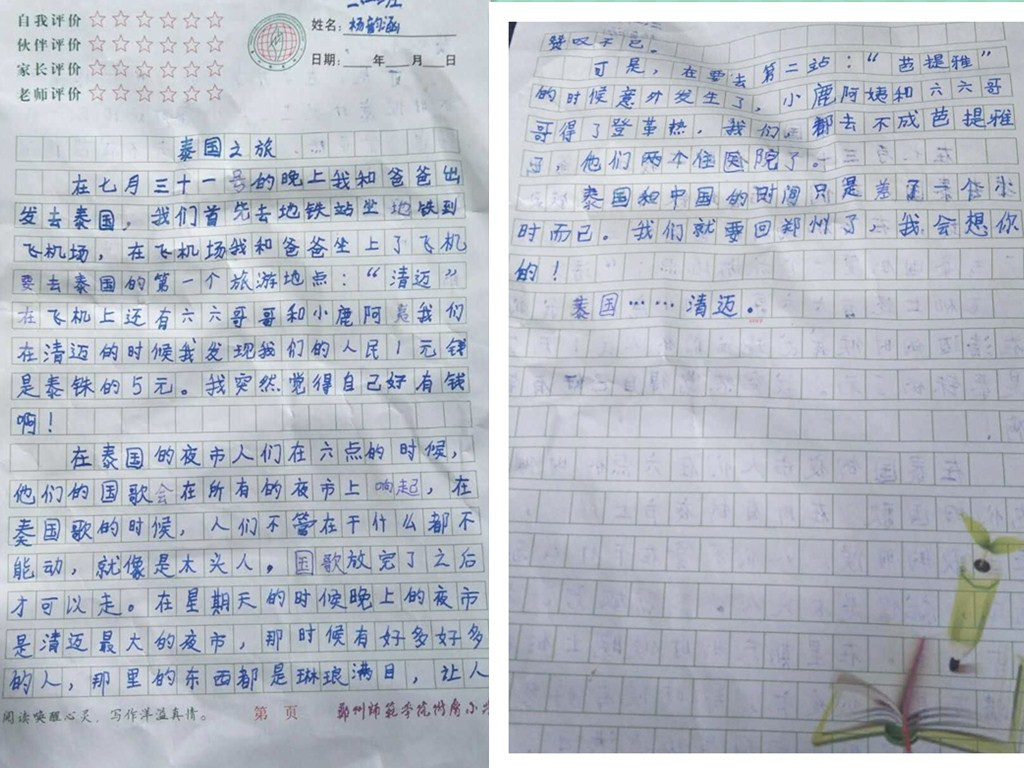 自我评价 ☆☆☆☆☆☆
伙伴评价 ☆☆☆☆☆☆
家长评价 ☆☆☆☆☆☆
老师评价 ☆☆☆☆☆☆
姓名：杨韵涵
日期：___年___月___日
泰国之旅
在七月三十一号的晚上我和爸爸出
发去泰国，我们首先去地铁站坐地铁到
飞机场，在飞机场我和爸爸坐上了飞机
要去泰国的第一个旅游地点：“清迈”
在飞机上还有六六哥哥和小鹿阿姨我们
在清迈的时候我发现我们的人民1元钱
是泰铢的5元。我突然觉得自己好有钱
啊！
在泰国的夜市人们在六点的时候，
他们的国歌会在所有的夜市上响起，在
奏国歌的时候，人们不管在干什么都不
能动，就像是木头人。国歌放完了之后
才可以走。在星期天的时候晚上的夜市
是清迈最大的夜市，那时候有好多好多
的人，那里的东西都是琳琅满目，让人
阅读唤醒心灵，写作洋溢真情。 第 页 郑州师范学院附属小学
赞叹不已。
可是，在要去第二站：“芭提雅”
的时候意外发生了，小鹿阿姨和六六哥
哥得了登革热，我们都去不成芭提雅
了，他们两个住医院了。
泰国和中国的时间只是差了一个小
时而已。我们就要回郑州了，我会想你
的！
泰国……清迈。